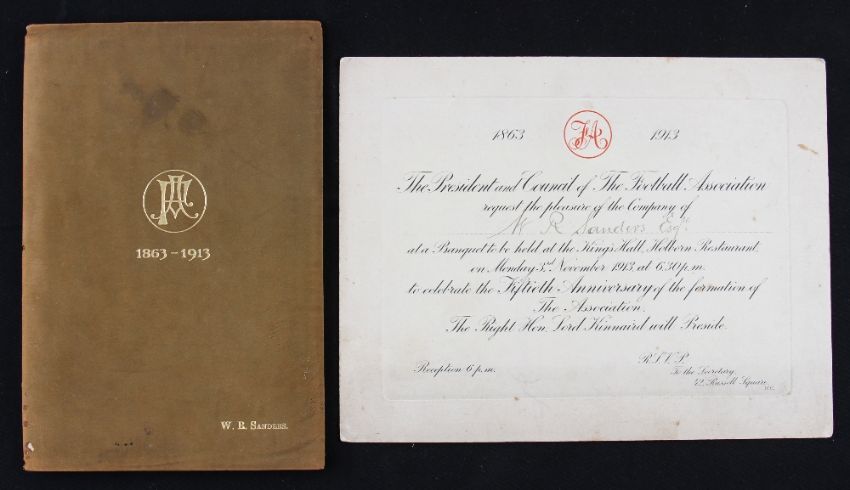 FA
1863-1913
W. R. SANDERS.
1863 FA 1913
The President and Council of The Football Association
request the pleasure of the Company of
W R Sanders Esqr.
at a Banquet to be held at the King's Hall, Holborn Restaurant,
on Monday 3rd November 1913, at 6.30 p.m.
to celebrate the Fiftieth Anniversary of the formation of
The Association.
The Right Hon. Lord Kinnaird will Preside.
Reception 6 p.m.
R.S.V.P.
To the Secretary,
42, Russell Square,
W.C.